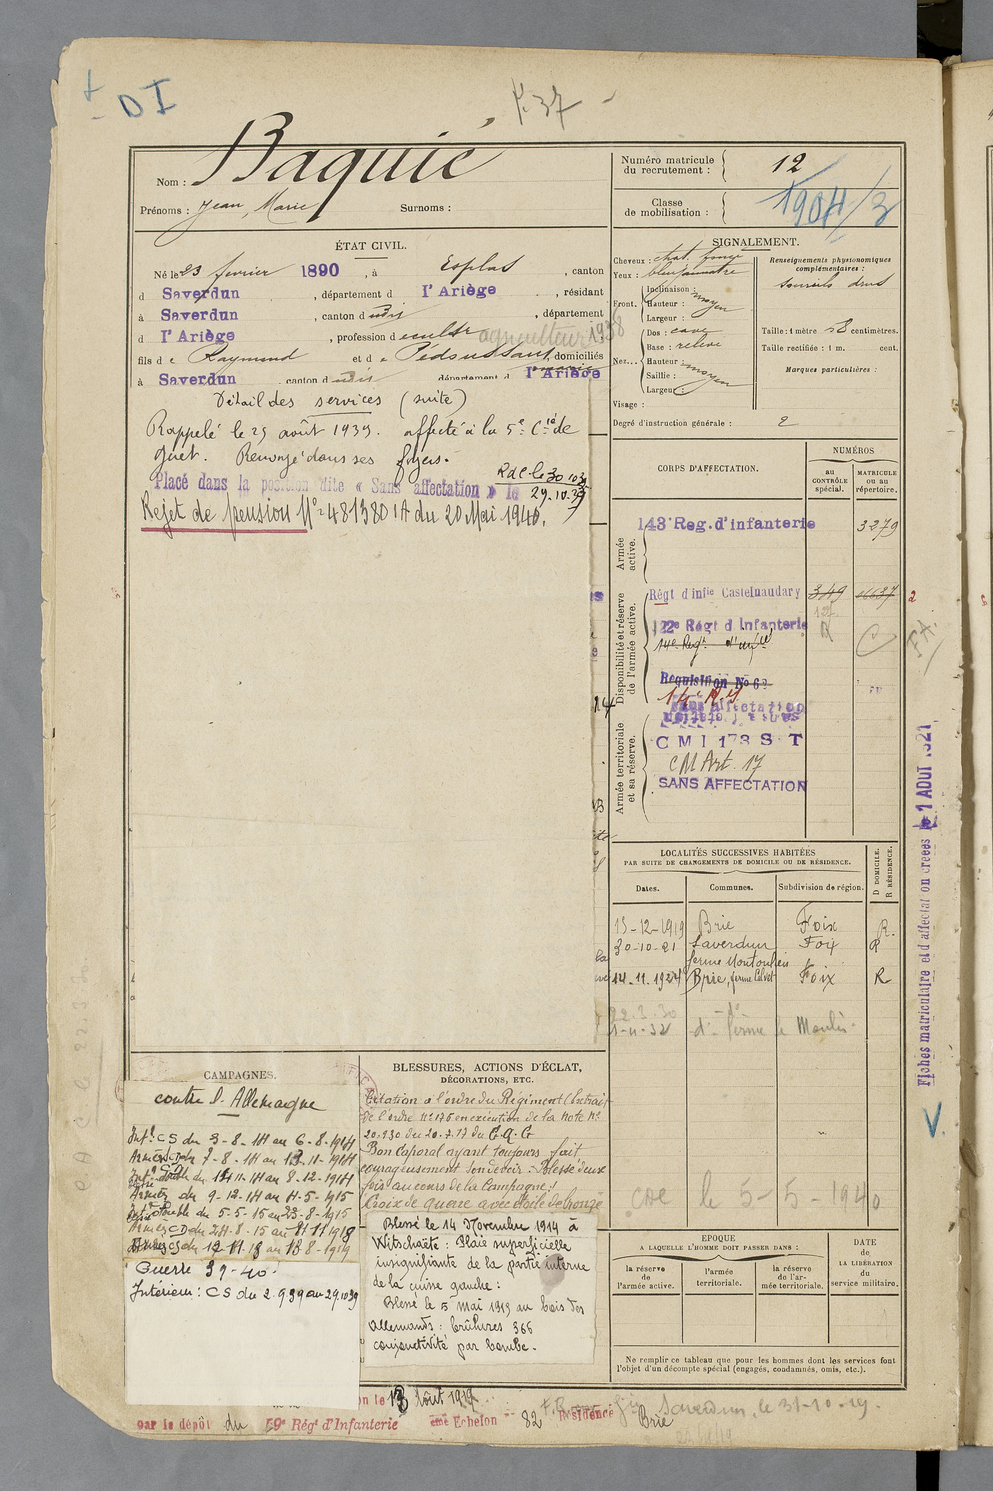 DI
K. 37
Nom : Baquié
Prénoms : Jean, Marie Surnoms :
Numéro matricule du recrutement : 12
Classe de mobilisation : 1904/3
ÉTAT CIVIL.
Né le 23 février 1890, à Esplas, canton
d Saverdun, département d l'Ariège, résidant
à Saverdun, canton d udit, département
d l'Ariège, profession d cultr agriculteur 1938
fils d e Raymond et d e Pédoussaut, domiciliés
à Saverdun canton d udit département d l'Ariège
SIGNALEMENT.
Cheveux : chat. foncé
Yeux :
Front. Inclinaison : moyen
Hauteur :
Largeur :
Nez... Dos : cave
Base : relevé
Hauteur : moyen
Saillie :
Largeur :
Visage :
Renseignements physionomiques complémentaires :
sourcils drus
Taille : 1 mètre centimètres.
Taille rectifiée : 1 m. cent.
Marques particulières :
Degré d'instruction générale : 2
Détail des services (suite)
Rappelé le 25 août 1939. affecté à la 5e Cie de
guet. Renvoyé dans ses foyers.
Rdc le 30 10 39
Placé dans la position dite « Sans affectation » le 29.10.39
Rejet de pension No 481380 1A du 20 Mai 1940.
CORPS D'AFFECTATION.
NUMÉROS
au CONTRÔLE spécial.
MATRICULE ou au répertoire.
Armée active.
143e Reg. d'infanterie 3279
Disponibilité et réserve de l'armée active.
Régt d'infie Castelnaudary 349
122e Régt d'Infanterie
14e Regt d'infie
Réquisition No 62
Sans affectation
Armée territoriale et sa réserve.
C M I 173 S T
CM Art. 17
SANS AFFECTATION
LOCALITÉS SUCCESSIVES HABITÉES
PAR SUITE DE CHANGEMENTS DE DOMICILE OU DE RÉSIDENCE.
Dates. Communes. Subdivision de région. D DOMICILE. R RÉSIDENCE.
15-12-1919 Brie Foix R.
30-10-21 Saverdun Foix R
ferme
14-11-1924 Brie, ferme Calvet Foix R
22-3-30
1-11-32 do ferme le Moulin
Fiches matriculaire et d'affectation créées le 1 AOUT 1921
V
CDC le 5-5-1940
CAMPAGNES.
contre l'Allemagne
Intr CS du 3-8-14 au 6-8-1914
Armées CD du 7-8-14 au 13-11-1914
Intr double du 14-11-14 au 8-12-1914
Armées du 9-12-14 au 4-5-1915
Intr double du 5-5-15 au 23-8-1915
Armées CD du 24-8-15 au 11-11-1918
Armées CS du 12-11-18 au 18-8-1919
Guerre 39-40.
Intérieur : CS du 2.9.39 au 29.10.39
BLESSURES, ACTIONS D'ÉCLAT,
DÉCORATIONS, ETC.
Citation à l'ordre du Régiment (Extrait
de l'ordre no 175 en exécution de la Note No
20.230 du 20-7-17 du G.Q.G
Bon Caporal ayant toujours fait
courageusement son devoir. Blessé deux
fois au cours de la Campagne.
Croix de guerre avec étoile de bronze
Blessé le 14 Novembre 1914 à
Witschaëte : Plaie superficielle
insignifiante de la partie interne
de la cuisse gauche :
Blessé le 5 mai 1915 au bois des
allemands : brûlures
conjonctivite par bombe.
EPOQUE
A LAQUELLE L'HOMME DOIT PASSER DANS :
la réserve de l'armée active.
l'armée territoriale.
la réserve de l'armée territoriale.
DATE de LA LIBÉRATION du service militaire.
Ne remplir ce tableau que pour les hommes dont les services font
l'objet d'un décompte spécial (engagés, condamnés, omis, etc.).
on le 18 Août 1919
par le dépôt du 59e Régt d'Infanterie eme Echelon 82 Résidence Brie
Saverdun, le 31-10-19.